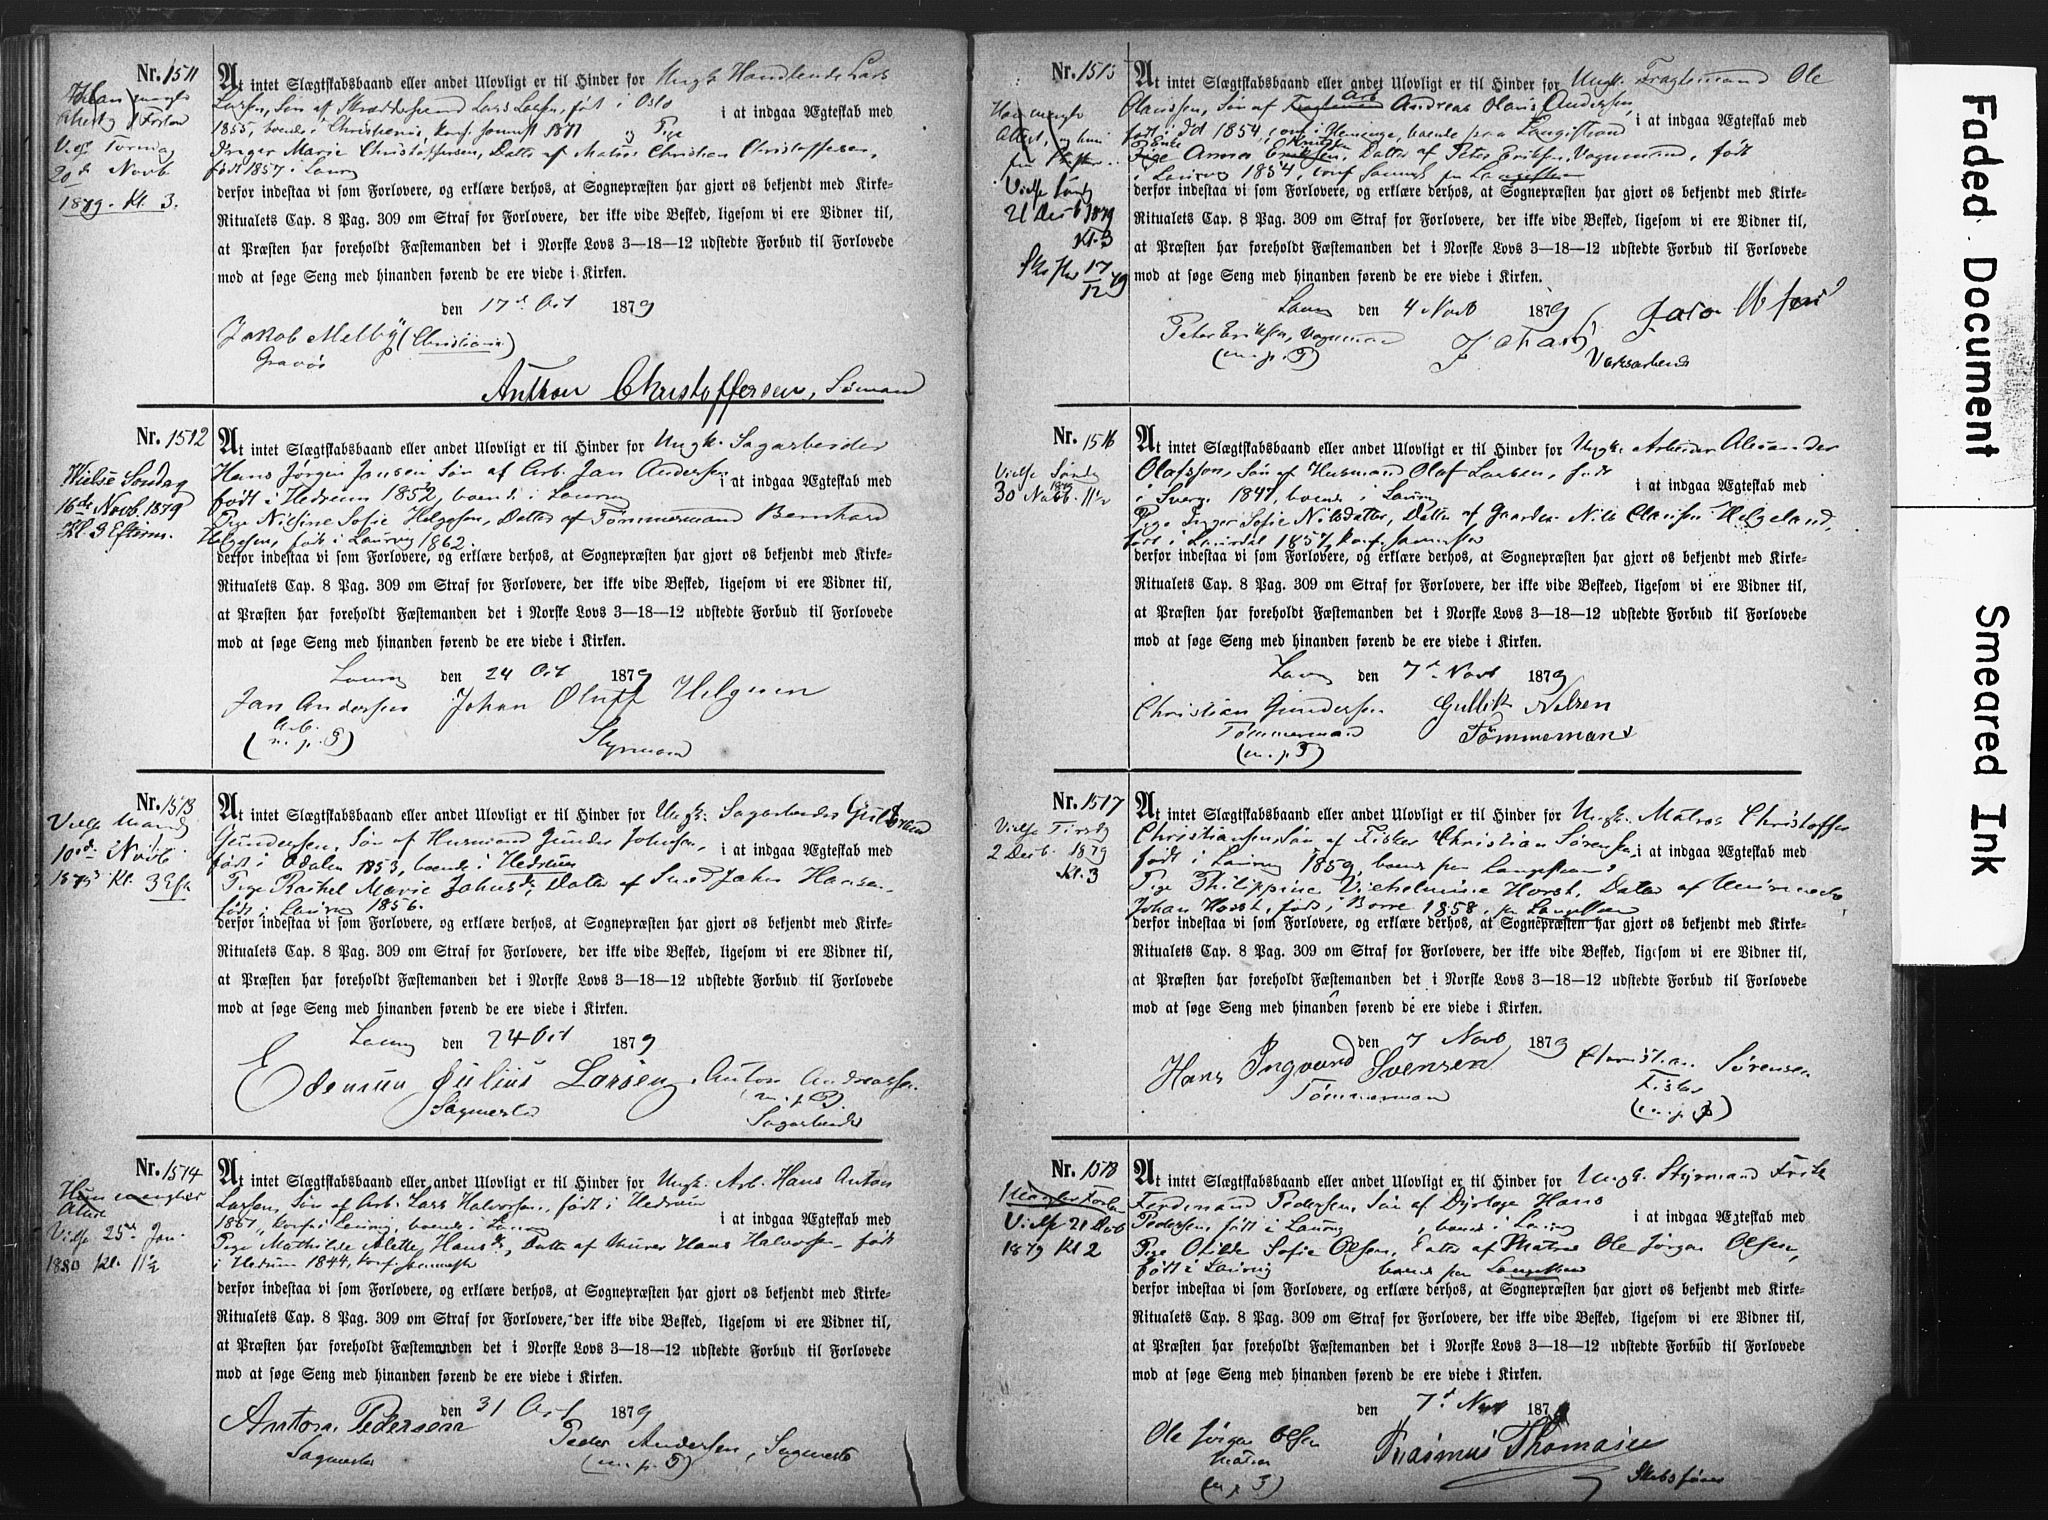 Nr. 1511
At intet Slægtskabsbaand eller andet Ulovligt er til Hinder for Ungk. Handlende Lars
Larsen, Søn af Skræddersvend Lars Larsen, født i Oslo
1855, boende i Christiania, konf. sammest 1871 og Pige i at indgaa Ægteskab med
Inger Marie Christoffersen, Datter af Matros Christian Christoffersen,
født 1857 i Laurvig
derfor indestaa vi som Forlovere, og erklære derhos, at Sognepræsten har gjort os bekjendt med Kirke-
Ritualets Cap. 8 Pag. 309 om Straf for Forlovere, der ikke vide Besked, ligesom vi ere Vidner til,
at Præsten har foreholdt Fæstemanden det i Norske Lovs 3—18—12 udstedte Forbud til Forlovede
mod at søge Seng med hinanden førend de ere viede i Kirken.
den 17d Oct 1879
Jakob Melby (Christiania)
Gravør
Anthon Christoffersen, Sømand
Torsdag
20de Novb
1879. Kl. 3.
Nr. 1512
At intet Slægtskabsbaand eller andet Ulovligt er til Hinder for Ungk. Sagarbeider
Hans Jørgen Jansen Søn af Arb. Jan Andersen i at indgaa Ægteskab med
født i Hedrum 1852, boende i Laurvig
Pige Nilsine Sofie Helgesen, Datter af Tømmermand Bernhard
Helgesen, født i Laurvig 1862.
derfor indestaa vi som Forlovere, og erklære derhos, at Sognepræsten har gjort os bekjendt med Kirke-
Ritualets Cap. 8 Pag. 309 om Straf for Forlovere, der ikke vide Besked, ligesom vi ere Vidner til,
at Præsten har foreholdt Fæstemanden det i Norske Lovs 3—18—12 udstedte Forbud til Forlovede
mod at søge Seng med hinanden førend de ere viede i Kirken.
Laurvig den 24 Oct 1879
Jan Andersen Johan Oluff Helgesen
Arb. Styrmand
(m. p. P)
Vielse Søndag
16de Novb. 1879
Kl. 3 Efterm.
Nr. 1513
At intet Slægtskabsbaand eller andet Ulovligt er til Hinder for Ungk. Sagarbeider Gulbrand
Gundersen, Søn af Husmand Gunder Johnsen, i at indgaa Ægteskab med
født i Odalen 1853, boende i Hedrum
Pige Rachel Marie Johnsdr, Datter af Smed John Hansen
født i Laurvig 1856.
derfor indestaa vi som Forlovere, og erklære derhos, at Sognepræsten har gjort os bekjendt med Kirke-
Ritualets Cap. 8 Pag. 309 om Straf for Forlovere, der ikke vide Besked, ligesom vi ere Vidner til,
at Præsten har foreholdt Fæstemanden det i Norske Lovs 3—18—12 udstedte Forbud til Forlovede
mod at søge Seng med hinanden førend de ere viede i Kirken.
Laurvig den 24 Oct 1879
Julius Larsen Anton Andreassen
Sagmester (m. p. P)
Sagarbeider
Vielse Mandag
10de Novb
Kl. 3 Eft
Nr. 1514
At intet Slægtskabsbaand eller andet Ulovligt er til Hinder for Ungk. Arb. Hans Anton
Larsen, Søn af Arb. Lars Halvorsen, født i Hedrum
konf. i Laurvig, boende i Laurvig i at indgaa Ægteskab med
Pige Mathilde Alette Hansdr, Datter af Murer Hans Halvorsen, født
i Hedrum 1844, konf. sammest.
derfor indestaa vi som Forlovere, og erklære derhos, at Sognepræsten har gjort os bekjendt med Kirke-
Ritualets Cap. 8 Pag. 309 om Straf for Forlovere, der ikke vide Besked, ligesom vi ere Vidner til,
at Præsten har foreholdt Fæstemanden det i Norske Lovs 3—18—12 udstedte Forbud til Forlovede
mod at søge Seng med hinanden førend de ere viede i Kirken.
den 31 Oct 1879
Anton Pedersen Peder Andersen, Sagmester
Sagmester (m. p. P)
Hun mangler
Vielse 25de Jan.
1880 Kl. 11½
Nr. 1515
At intet Slægtskabsbaand eller andet Ulovligt er til Hinder for Ungk. Fragtemand Ole
Olanssen, Søn af Arb Andreas Olaus Andersen,
1854, boende paa Langestrand i at indgaa Ægteskab med
Enke Anna Knutsen, Datter af Peter Eriksen, Vognmand, født
i Laurvig 1854
derfor indestaa vi som Forlovere, og erklære derhos, at Sognepræsten har gjort os bekjendt med Kirke-
Ritualets Cap. 8 Pag. 309 om Straf for Forlovere, der ikke vide Besked, ligesom vi ere Vidner til,
at Præsten har foreholdt Fæstemanden det i Norske Lovs 3—18—12 udstedte Forbud til Forlovede
mod at søge Seng med hinanden førend de ere viede i Kirken.
Laurvig den 4 Novb 1879
Peter Eriksen, Vognmand
(m. p. P)
Han mangler
Attest, og hun
Vielse Søndag
21 Decb 1879
Kl. 3
Skifter 17/12 79
Nr. 1516
At intet Slægtskabsbaand eller andet Ulovligt er til Hinder for Ungk. Arbeider Alexander
Olafsson, Søn af Husmand Olaf Larsen, født
i Sverge 1847, boende i Laurvig i at indgaa Ægteskab med
Pige Inger Sofie Nilsdatter, Datter af Gaardm. Nils Clausen Helgeland,
født i Laurdal 1857, konf. sammest
derfor indestaa vi som Forlovere, og erklære derhos, at Sognepræsten har gjort os bekjendt med Kirke-
Ritualets Cap. 8 Pag. 309 om Straf for Forlovere, der ikke vide Beskeed, ligesom vi ere Vidner til,
at Præsten har foreholdt Fæstemanden det i Norske Lovs 3—18—12 udstedte Forbud til Forlovede
mod at søge Seng med hinanden førend de ere viede i Kirken.
Laurvig den 7d Novb 1879
Christian Gundersen Gullik Nelsen
Tømmermand Tømmermand
(m. p. P)
Vielse Søndag
30 Novb. 1879 11½
Nr. 1517
At intet Slægtskabsbaand eller andet Ulovligt er til Hinder for Ungk. Matros Christoffer
Christiansen Søn af Fisker Christian Sørensen, i at indgaa Ægteskab med
født i Laurvig 1859, boende paa Langestrand
Pige Philippine Vilhelmine Horst, Datter af Murermester
Johan Horst, født i Borre 1858, paa Langestrand
derfor indestaa vi som Forlovere, og erklære derhos, at Sognepræsten har gjort os bekjendt med Kirke-
Ritualets Cap. 8 Pag. 309 om Straf for Forlovere, der ikke vide Besked, ligesom vi ere Vidner til,
at Præsten har foreholdt Fæstemanden det i Norske Lovs 3—18—12 udstedte Forbud til Forlovede
mod at søge Seng med hinanden førend de ere viede i Kirken.
den 7 Novb 1879
Hans Ingvard Svensen Christian Sørensen
Tømmermand Fisker
(m. p. P)
Vielse Tirsdag
2 Decb. 1879
Kl. 3
Nr. 1518
At intet Slægtskabsbaand eller andet Ulovligt er til Hinder for Ungk. Styrmand Fritz
Ferdinand Pedersen, Søn af Hans
Pedersen, født i Laurvig, boende i Laurvig i at indgaa Ægteskab med
Pige Otilde Sofie Olsen, Datter af Matros Ole Jørgen Olsen,
født i Laurvig boende paa Langestrand
derfor indestaa vi som Forlovere, og erklære derhos, at Sognepræsten har gjort os bekjendt med Kirke-
Ritualets Cap. 8 Pag. 309 om Straf for Forlovere, der ikke vide Besked, ligesom vi ere Vidner til,
at Præsten har foreholdt Fæstemanden det i Norske Lovs 3—18—12 udstedte Forbud til Forlovede
mod at søge Seng med hinanden førend de ere viede i Kirken.
den 7d Novb 187
Ole Jørgen Olsen Rasmus Thomasen
Matros Skibsfører
(m. p. P)
Vielse 21 Decb
1879 Kl 2
Faded Document
Smeared Ink